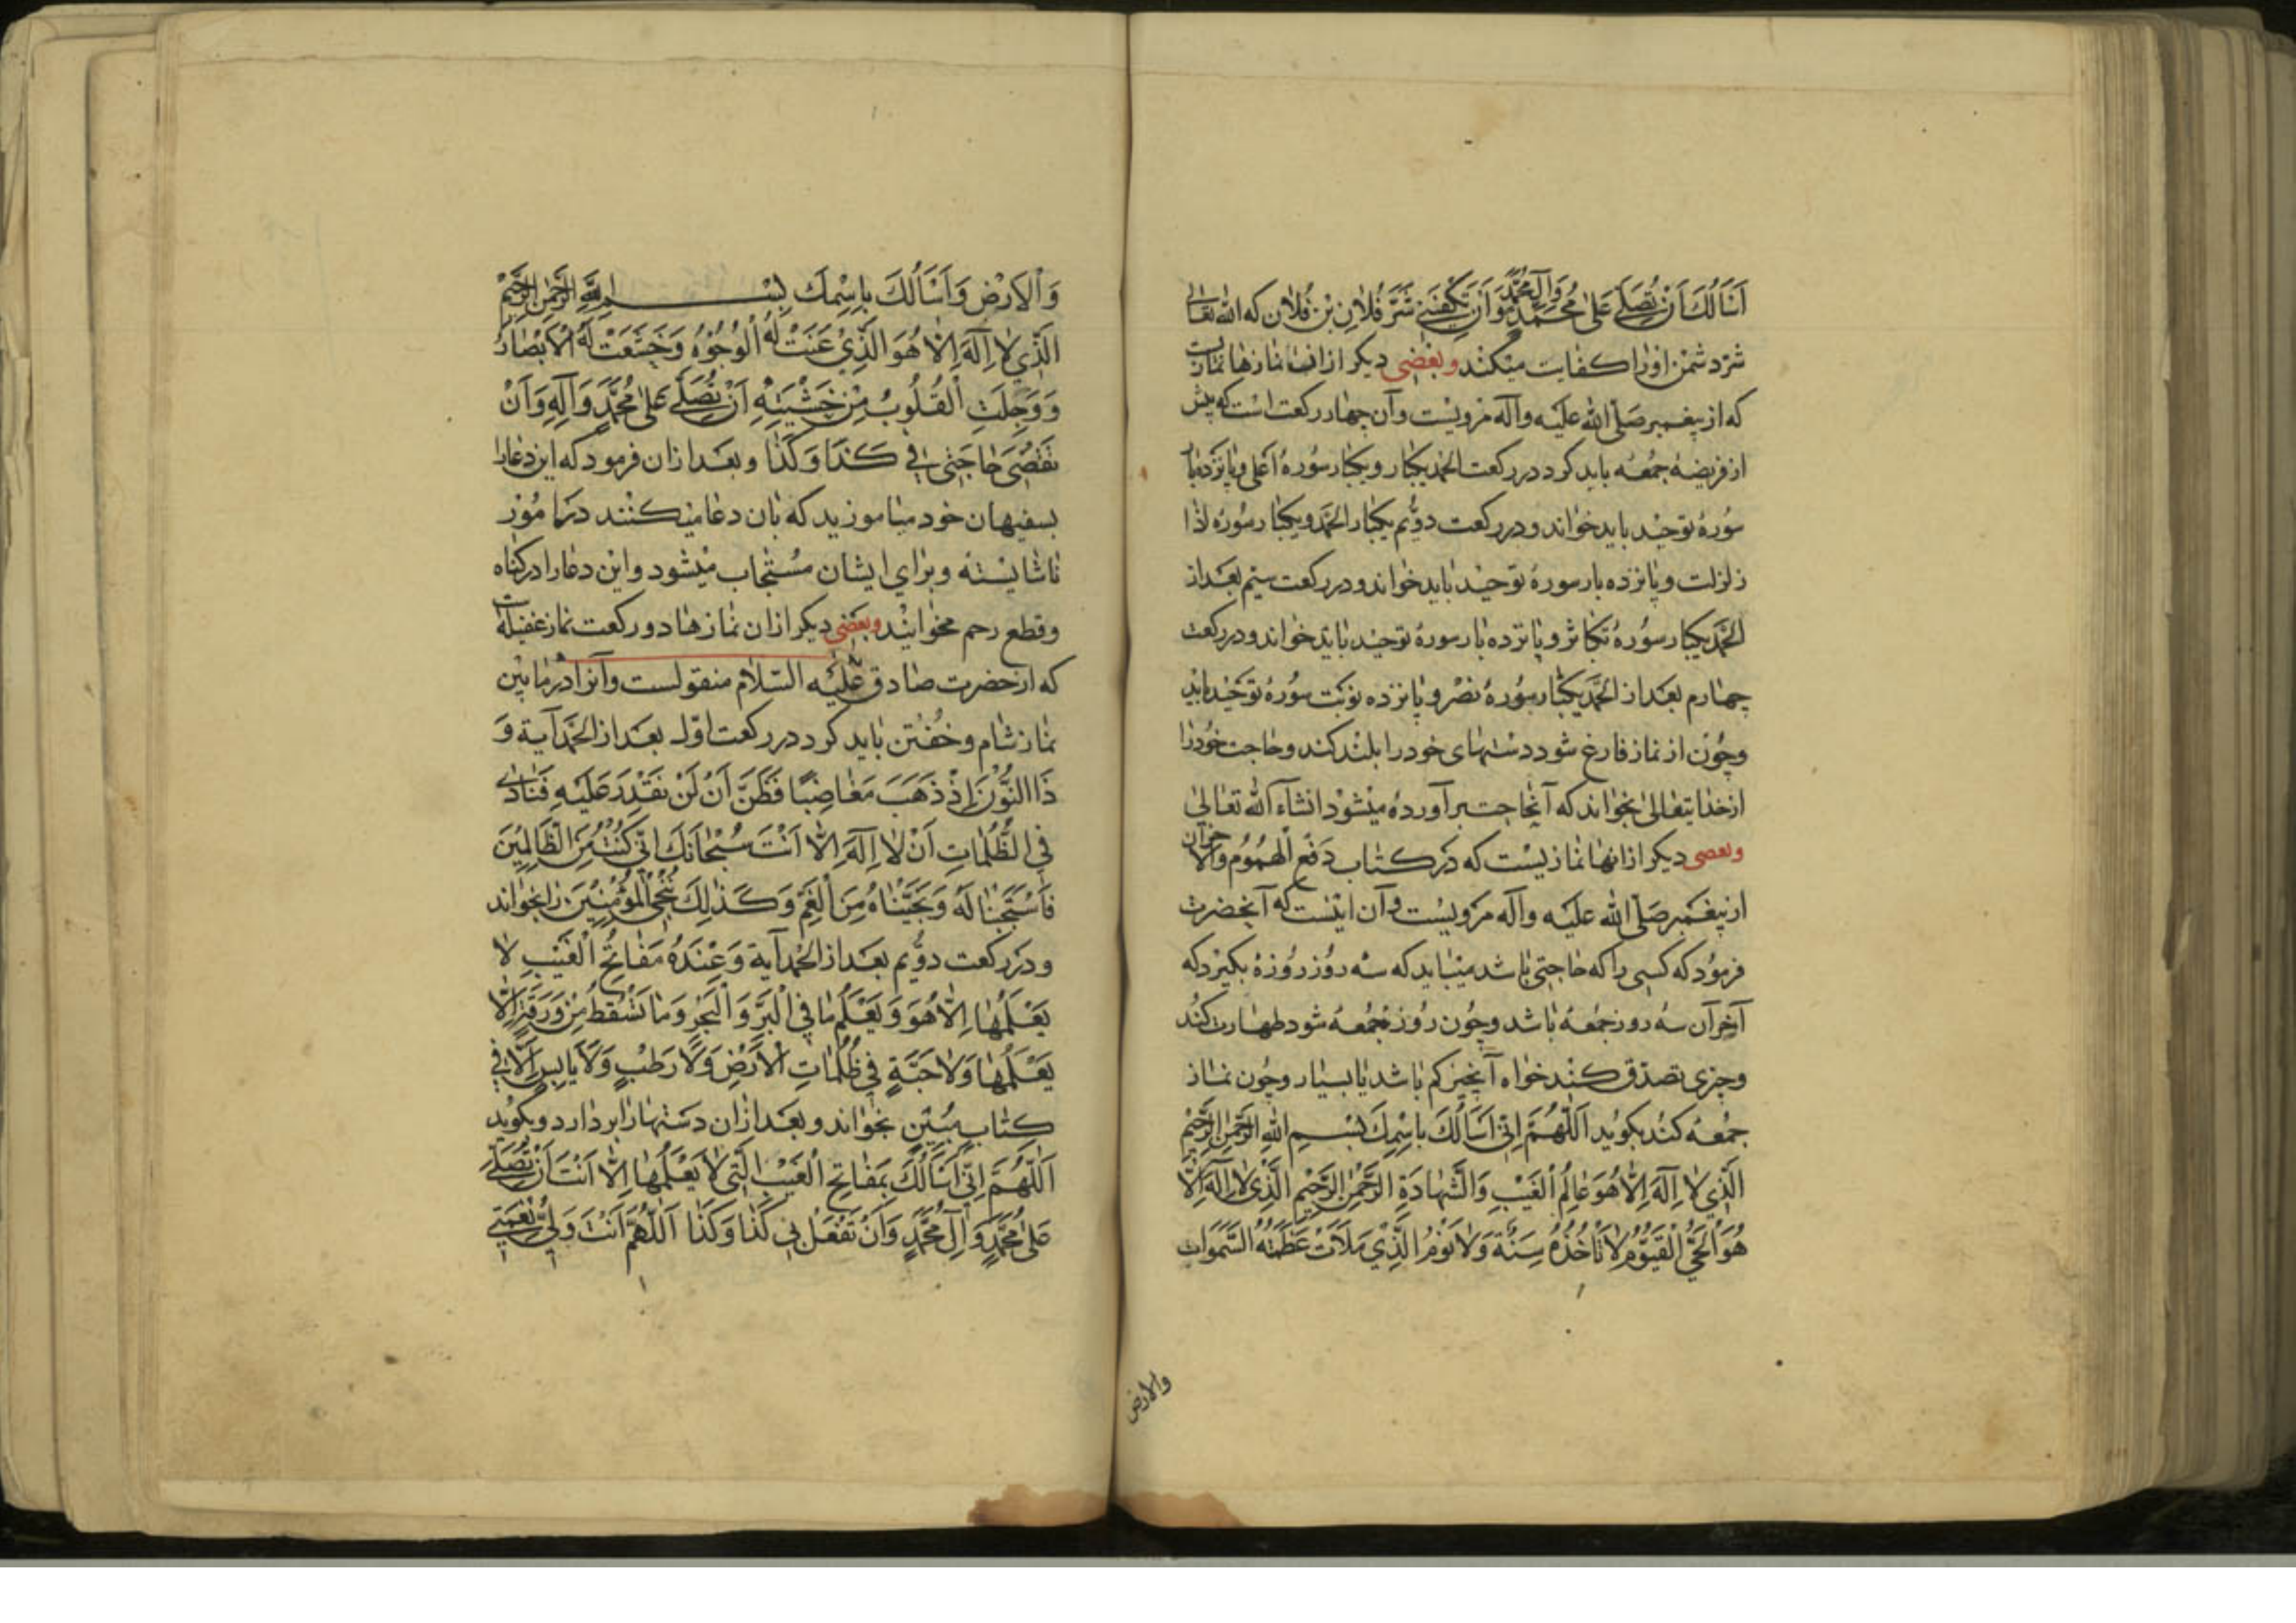 اَسْاَلُكَ اَنْ تُصَلِّىَ عَلىٰ مُحَمَّدٍ وَآلِ مُحَمَّدٍ وَاَنْ تَكْفِيَنى شَرَّ فُلانِ بْنِ فُلان كه الله تعالى
شرّ دشمن اورا كفايت ميكند وبعضى ديكر از انها نمازيست
كه از پيغمبر صَلّى الله عليه وآله مرويست وآن چهار ركعت است كه پيش
از فريضهٔ جمعه بايد كرد در ركعت الحمد يكبار ويكبار سورهٔ اعلى وپانزده بار
سورهٔ توحيد بايد خواند ودر ركعت دوّيم يكبار الحمد ويكبار سورهٔ اذا
زلزلت وپانزده بار سورهٔ توحيد بايد خواند ودر ركعت سيّم بعد از
الحمد يكبار سورهٔ تكاثر وپانزده بار سورهٔ توحيد بايد خواند ودر ركعت
چهارم بعد از الحمد يكبار سورهٔ نصر وپانزده نوبت سورهٔ توحيد بايد
وچون از نماز فارغ شود دستهاى خود را بلند كند وحاجت خود را
از خدايتعالى بخواند كه آنحاجت برآورده ميشود انشاء الله تعالى
وبعضى ديكر از انها نمازيست كه در كتاب دَفع الهُمُوم والاحزان
از پيغمبر صَلّى الله عليه وآله مرويست وآن اينست كه آنحضرت
فرمود كه كسى را كه حاجتى باشد ميبايد كه سه روز روزه بكيرد كه
آخر آن سه روز جمعه باشد وچون روز جمعه شود طهارت كند
وچزى تصدّق كند خواه آنچيز كم باشد يا بسيار وچون نماز
جمعه كند بكويد اَللّٰهُمَّ اِنّى اَسْاَلُكَ بِاسْمِكَ بِسْمِ اللهِ الرَّحْمٰنِ الرَّحيْمِ
الَّذِي لا اِلٰهَ اِلّا هُوَ عالِمُ الْغَيْبِ وَالشَّهادَةِ الرَّحْمٰنِ الرَّحيْمِ الَّذِي لا اِلٰهَ اِلّا
هُوَ الْحَيُّ الْقَيُّومُ لا تَأْخُذُهُ سِنَةٌ وَلا نَوْمٌ الَّذِي مَلَاَتْ عَظَمَتُهُ السَّمٰوات
والارض
وَالْاَرْضَ وَاَسْاَلُكَ بِاسْمِكَ بِسْمِ اللهِ الرَّحْمٰنِ الرَّحيْمِ
الَّذِي لا اِلٰهَ اِلّا هُوَ الَّذِيْ عَنَتْ لَهُ الْوُجُوْهُ وَخَشَعَتْ لَهُ الْاَبْصارُ
وَوَجِلَتِ الْقُلُوبُ مِنْ خَشْيَتِهِ اَنْ تُصَلِّىَ عَلىٰ مُحَمَّدٍ وَآلِهِ وَاَنْ
تَقْضِىَ حاجَتى في كَذا وَكَذا وبعد از ان فرمود كه اين دعا را
بسفيهان خود مياموزيد كه بان دعا ميكنند در امور
ناشايسته وبراى ايشان مستجاب ميشود واين دعا را در كناه
وقطع رحم مخوانيد وبعضى ديكر از ان نمازها دو ركعت نماز غفيله است
كه از حضرت صادق عليه السّلام منقولست وآنرا در مابين
نماز شام وخفتن بايد كرد در ركعت اوّل بعد از الحمد آية وَ
ذَا النُّوْنِ اِذْ ذَهَبَ مُغاضِبًا فَظَنَّ اَنْ لَنْ نَقْدِرَ عَلَيْهِ فَنادى
فِي الظُّلُماتِ اَنْ لا اِلٰهَ اِلّا اَنْتَ سُبْحانَكَ اِنّى كُنْتُ مِنَ الظّالِمِيْنَ
فَاسْتَجَبْنا لَهُ وَنَجَّيْناهُ مِنَ الْغَمِّ وَكَذٰلِكَ نُنْجِى الْمُؤْمِنِيْنَ را بخواند
ودر ركعت دوّيم بعد از الحمد آية وَعِنْدَهُ مَفاتِحُ الْغَيْبِ لا
يَعْلَمُها اِلّا هُوَ وَيَعْلَمُ ما فِي الْبَرِّ وَالْبَحْرِ وَما تَسْقُطُ مِنْ وَرَقَةٍ اِلّا
يَعْلَمُها وَلا حَبَّةٍ في ظُلُماتِ الْاَرْضِ وَلا رَطْبٍ وَلا يابِسٍ اِلّا في
كِتابٍ مُبيْنٍ بخواند وبعد از ان دستها را بردارد وبكويد
اَللّٰهُمَّ اِنّى اَسْاَلُكَ بِمَفاتِحِ الْغَيْبِ الَّتى لا يَعْلَمُها اِلّا اَنْتَ اَنْ تُصَلِّىَ
عَلىٰ مُحَمَّدٍ وَآلِ مُحَمَّدٍ وَاَنْ تَفْعَلَ بى كَذا وَكَذا اَللّٰهُمَّ اَنْتَ وَلِيُّ نِعْمَتى